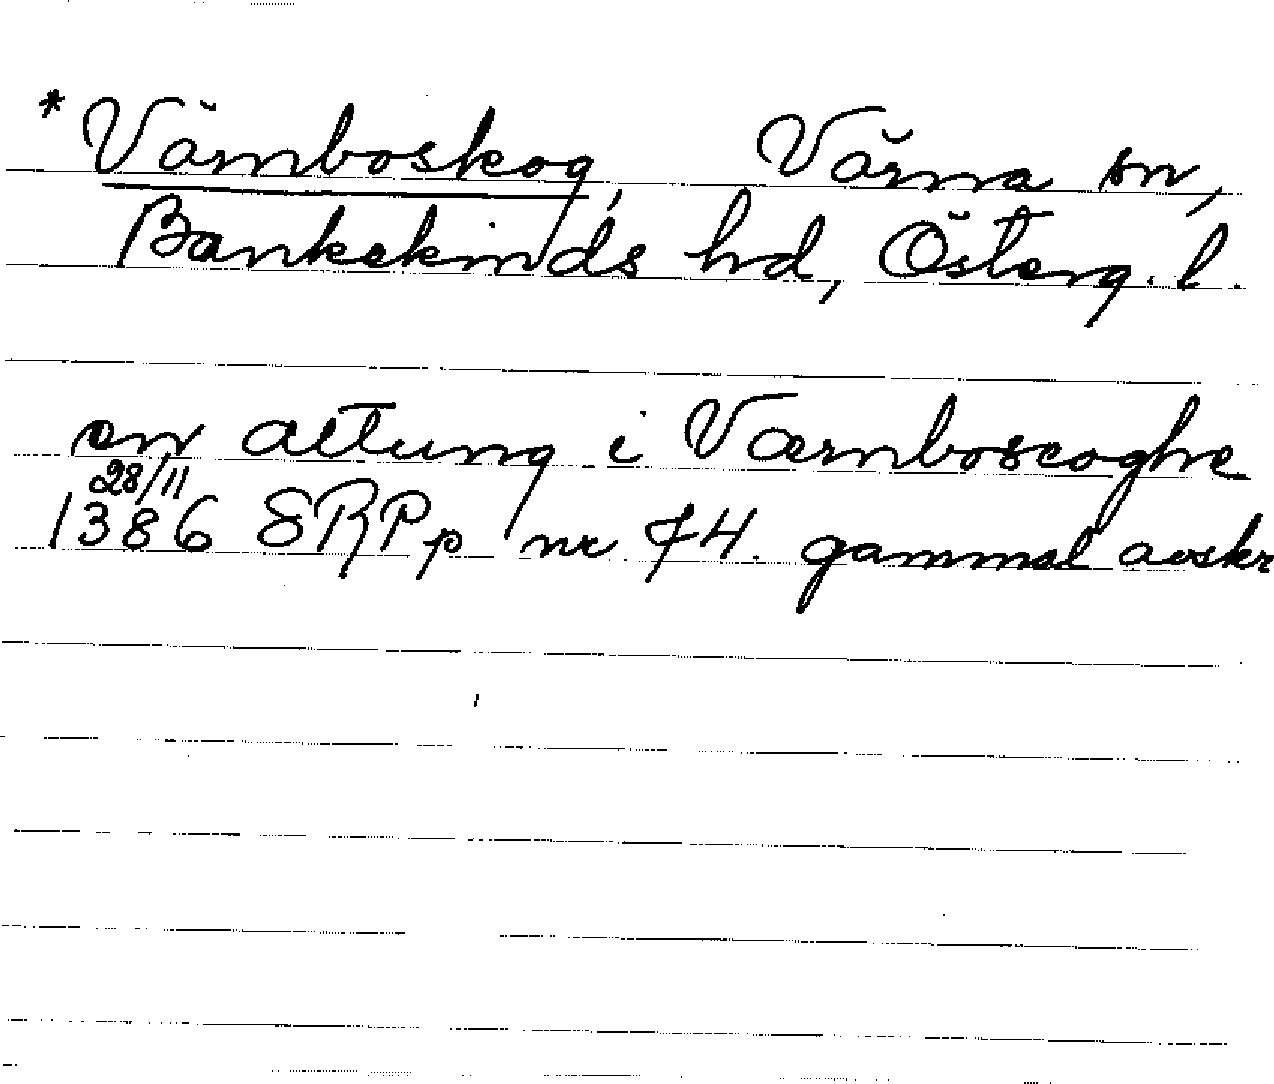 *Värnboskog, Värna sn,
Bankekinds hd, Österg. l.
en attung i Værnboscoghe
28/11
1386 SRPp nr 74. gammal avskr